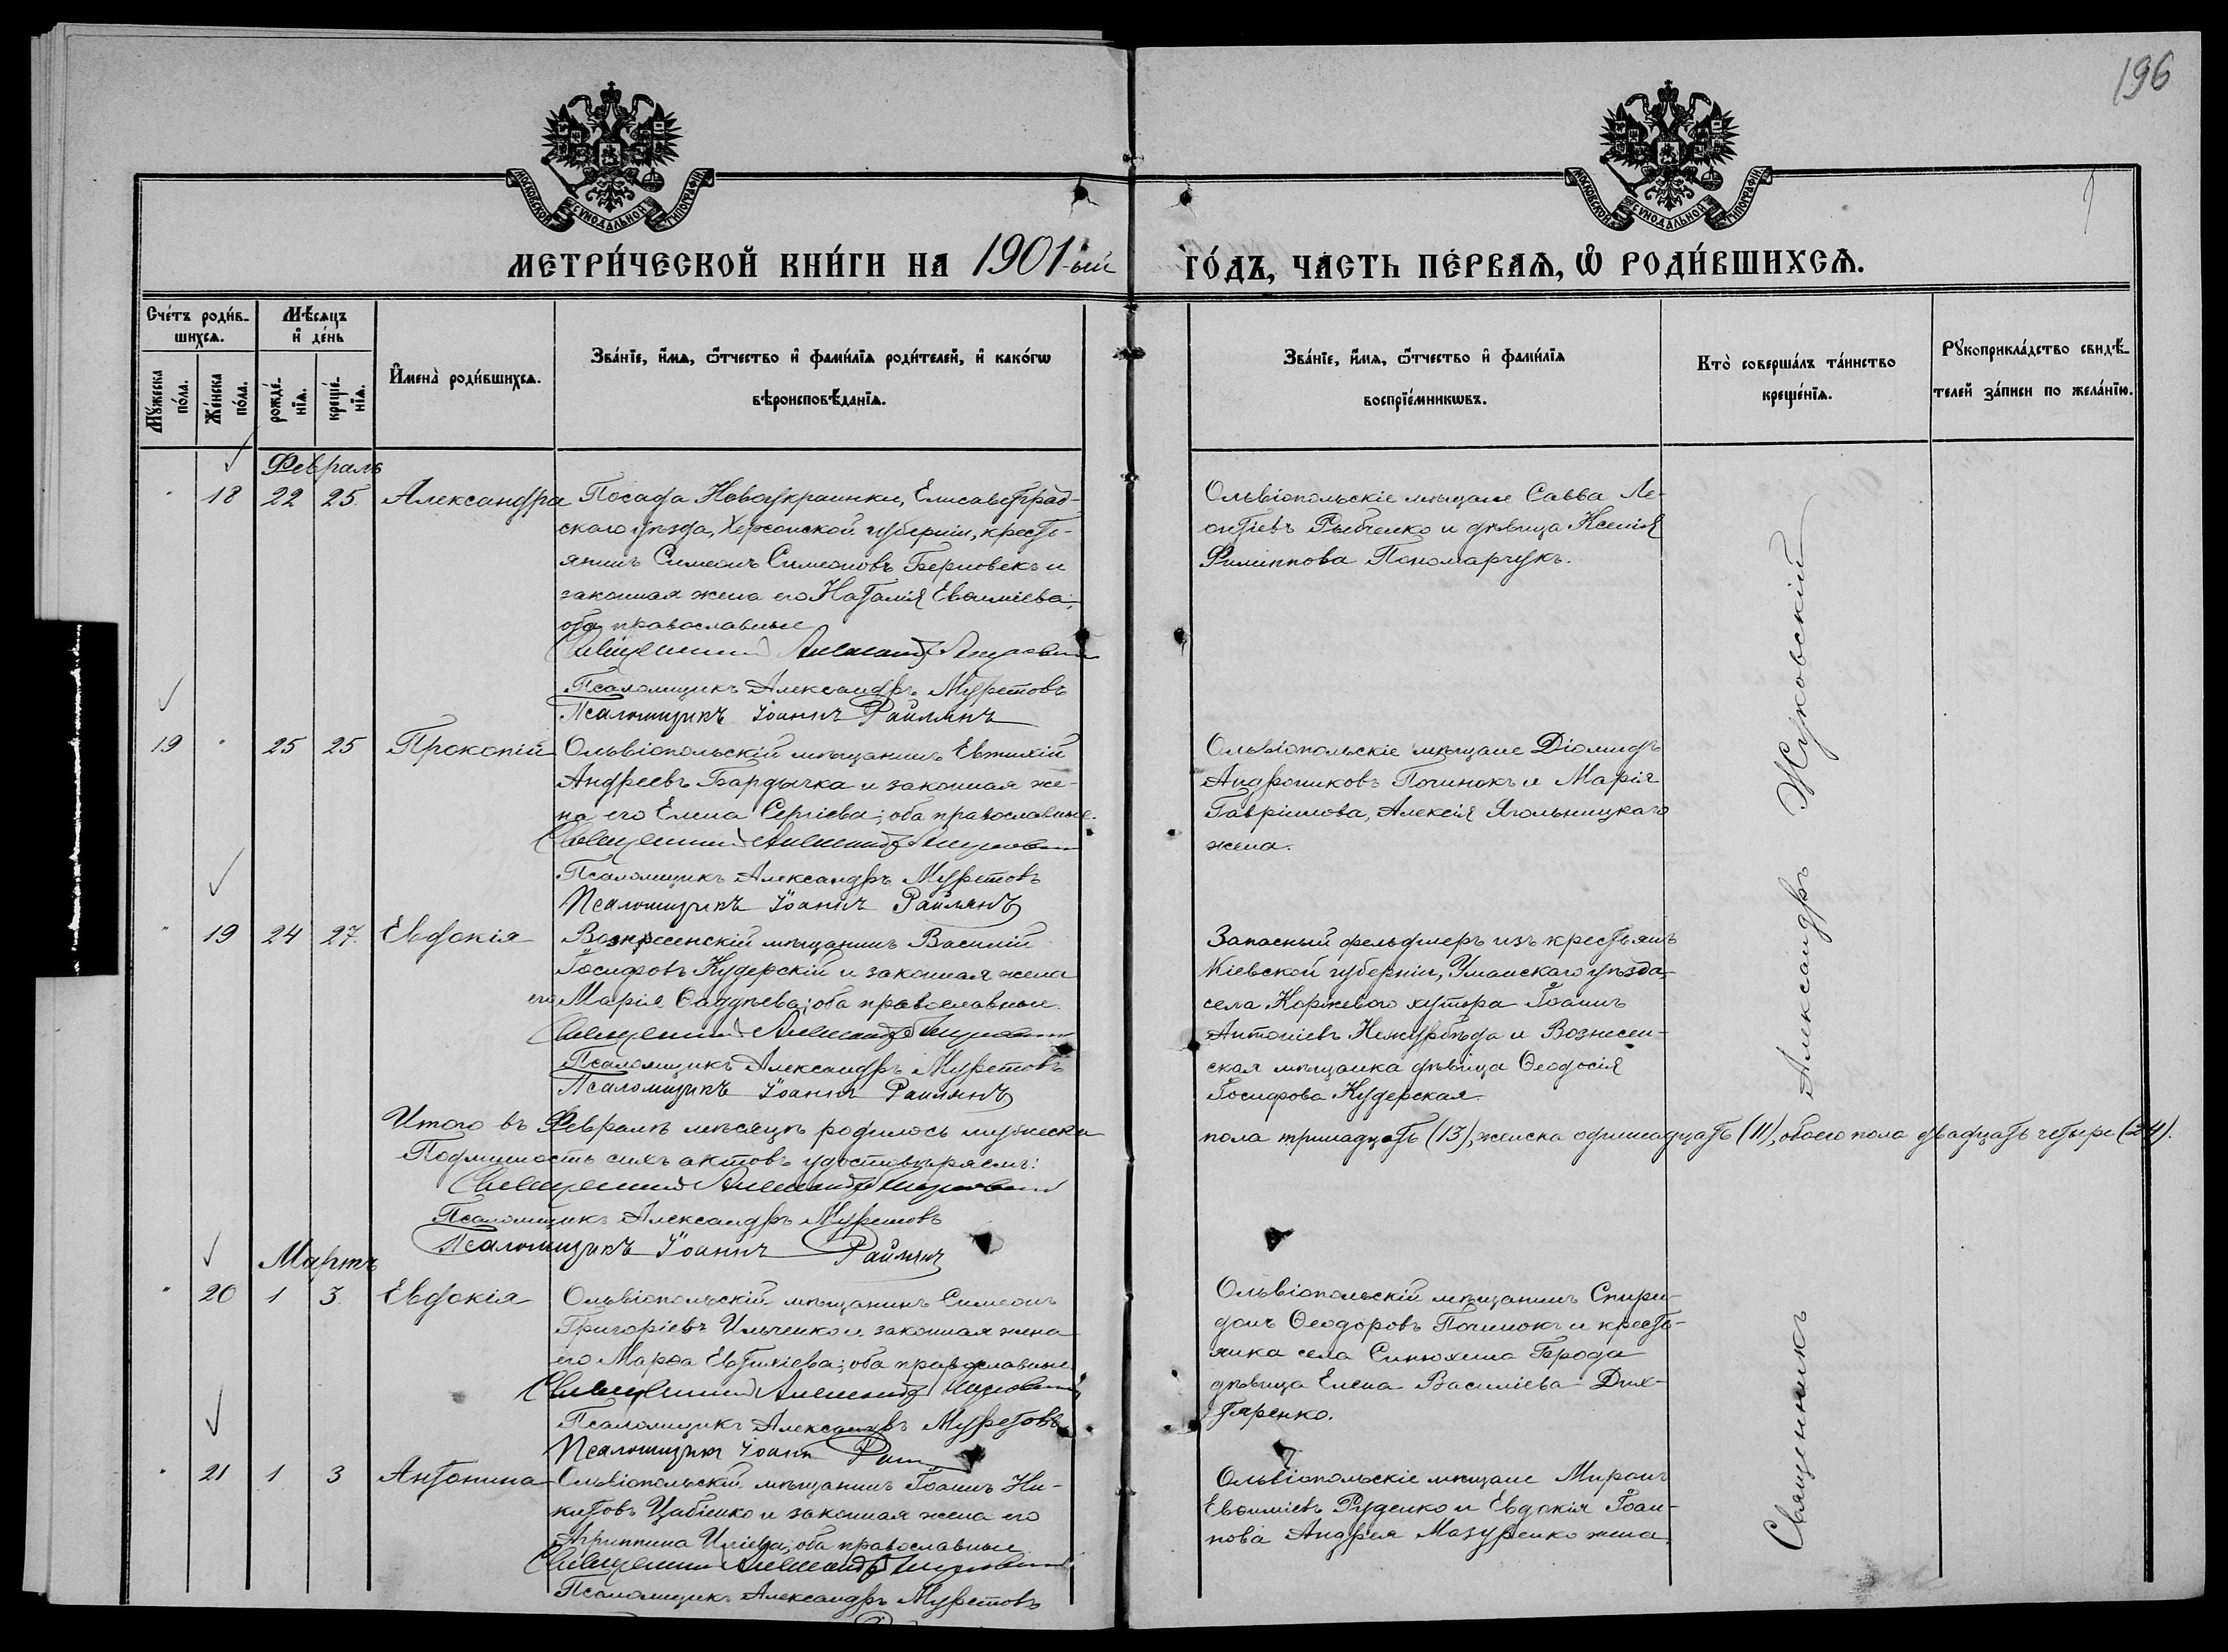 196
МОСКОВСКОЙ СѴНОДАЛЬНОЙ ТИПОГРАФІИ
МОСКОВСКОЙ СѴНОДАЛЬНОЙ ТИПОГРАФІИ
МЕТРИ́ЧЕСКОЙ КНИ́ГИ НА 1901-ый ГО́ДЪ, ЧА́СТЬ ПЕ́РВАѦ, Ѡ҆ РОДИ́ВШИХСѦ.
Сче́тъ роди́в-
шихсѧ.
Мꙋ́жеска по́ла.
Же́нска по́ла.
Мѣ́сѧцъ
и҆ де́нь
рожде́-
нїѧ.
креще́-
нїѧ.
И҆мена̀ роди́вшихсѧ.
Зва́нїе, и҆́мѧ, ѻ҆́тчество и҆ фами́лїѧ роди́телей, и҆ како́гѡ
вѣроисповѣ́данїѧ.
Зва́нїе, и҆́мѧ, ѻ҆́тчество и҆ фами́лїѧ
воспрїе́мникѡвъ.
Кто̀ соверша́лъ та́инство
креще́нїѧ.
Рꙋкоприкла́дство свидѣ́-
телей за́писи по жела́нїю.
Февраль
18 22 25. Александра
Посада Новоукраинки, Елисаветград-
скаго уѣзда, Херсонской губерніи, кресть-
янинъ Симеонъ Симеоновъ Берновекъ и
законная жена его Наталія Евѳиміева;
оба православные
Священникъ Александръ Жуковскій
Псаломщикъ Александръ Муретовъ
Псаломщикъ Іоаннъ Райлянъ
Ольвіопольскіе мѣщане Савва Ле-
онтіевъ Рыбченко и дѣвица Ксенія
Филиппова Пономарчукъ.
19 25 25 Прокопій
Ольвіопольскій мѣщанинъ Евтихій
Андреевъ Бардычка и законная же-
на его Елена Сергіева; оба православные.
Священникъ Александръ Жуковскій
Псаломщикъ Александръ Муретовъ
Псаломщикъ Іоаннъ Райлянъ
Ольвіопольскіе мѣщане Діомидъ
Андрониковъ Починокъ и Марія
Гавріилова, Алексія Ягольницкаго
жена.
19 24 27. Евдокія
Вознесенскій мѣщанинъ Василій
Іосифовъ Кудерскій и законная жена
его Марія Ѳаддѣева; оба православные.
Священникъ Александръ Жуковскій
Псаломщикъ Александръ Муретовъ
Псаломщикъ Іоаннъ Райлянъ
Запасный фельдшеръ изъ крестьянъ
Кіевской губерніи, Уманскаго уѣзда,
села Коржевого хутора Іоаннъ
Антоніевъ Нежурбѣда и Вознесен-
ская мѣщанка дѣвица Ѳеодосія
Іосифова Кудерская.
Итого въ Февралѣ мѣсяцѣ родилось мужеска пола тринадцать (13), женска одиннадцать (11), обоего пола двадцать четыре (24).
Подлинность сихъ актовъ удостовѣряемъ:
Священникъ Александръ Жуковскій
Псаломщикъ Александръ Муретовъ
Псаломщикъ Іоаннъ Райлянъ
Мартъ
20 1 3. Евдокія
Ольвіопольскій мѣщанинъ Симеонъ
Григоріевъ Ильченко и законная жена
его Марѳа Евтихіева; оба православные.
Священникъ Александръ Жуковскій
Псаломщикъ Александръ Муретовъ
Псаломщикъ Іоаннъ
Ольвіопольскій мѣщанинъ Спири-
донъ Ѳеодоровъ Починокъ и кресть-
янка села Синюхина Брода
дѣвица Елена Василіева Дих-
тяренко.
21 1 3 Антонина
Ольвіопольскій мѣщанинъ Іоаннъ Ни-
китовъ Цабіенко и законная жена его
Агриппина Иліева; оба православные
Священникъ Александръ Жуковскій
Псаломщикъ Александръ Муретовъ
Ольвіопольскіе мѣщане Миронъ
Евѳиміевъ Руденко и Евдокія Іоан-
нова Андрея Мазуренко жена.
Священникъ Александръ Жуковскій